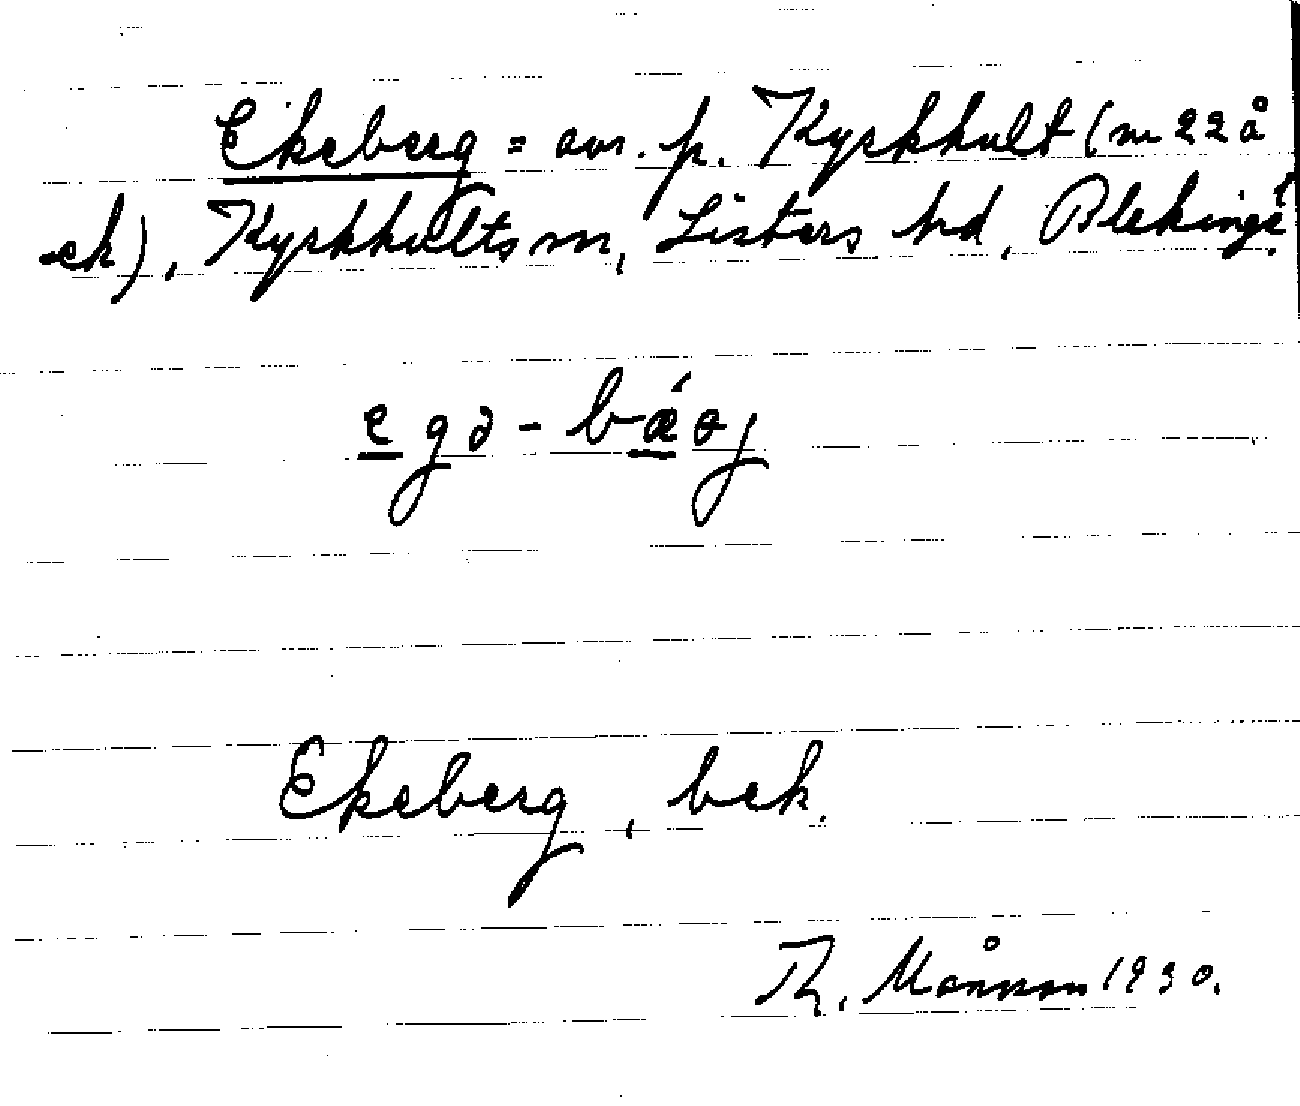 Ekeberg = avs. p. Kyrkhult (m 22 å
ek), Kyrkhults m, Listers hd, Blekinge
egə - bǽəj
Ekeberg, bek.
Th. Månsson 1930.